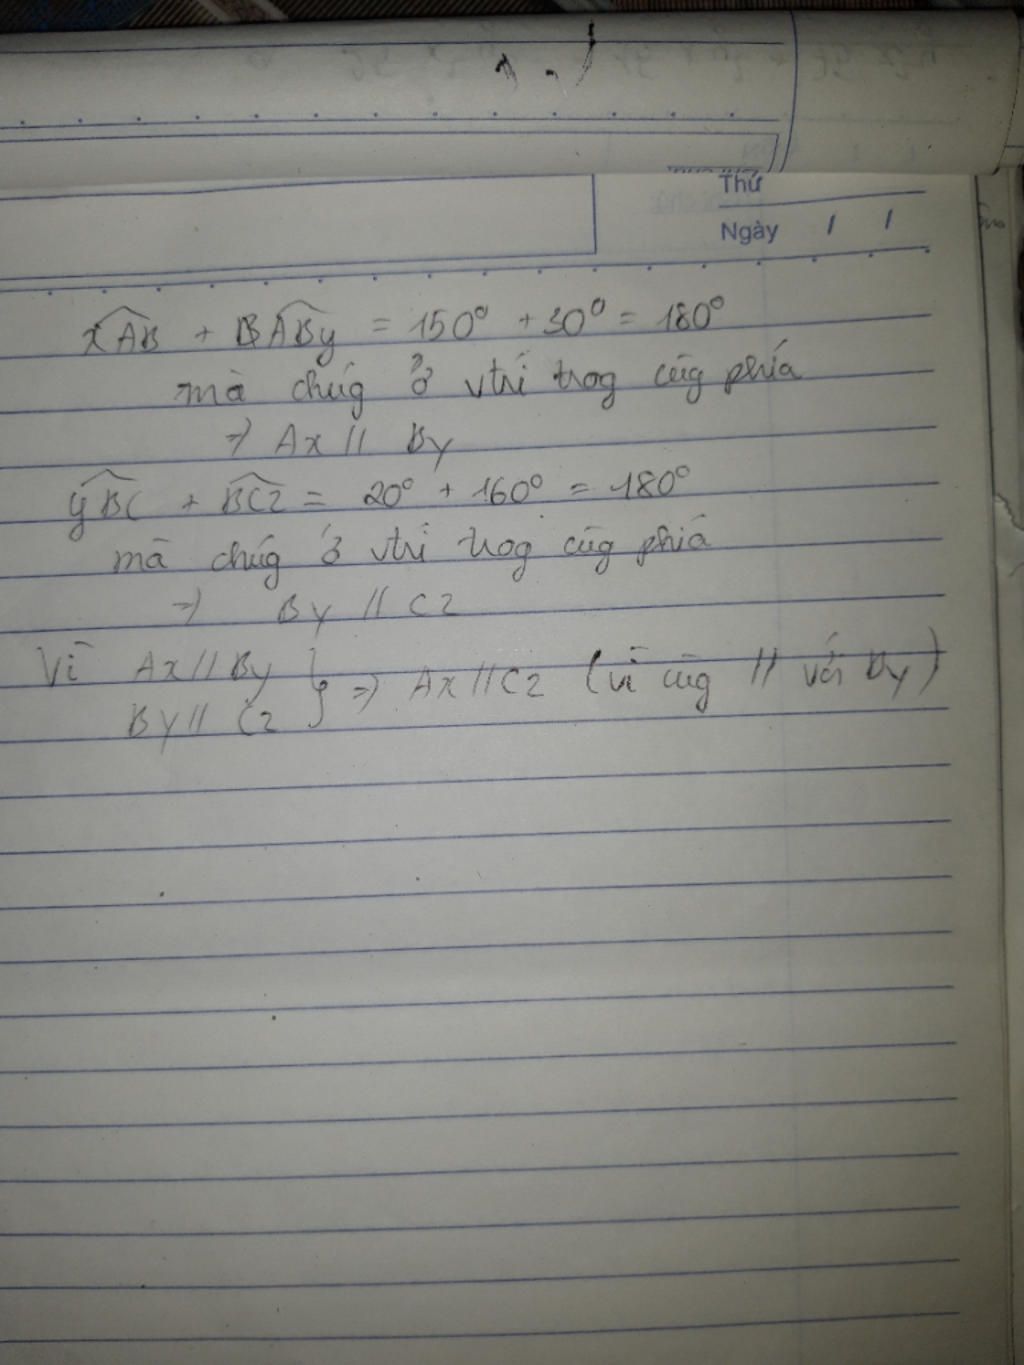 Thứ
Ngày / /
xAB + BABy = 150° + 30° = 180°
mà chúg ở vtrí trog cùg phía
=> Ax // By
yBC + BCz = 20° + 160° = 180°
mà chúg ở vtrí trog cùg phía
=> By // Cz
Vì Ax // By
By // Cz } => Ax // Cz (vì cùg // với By)